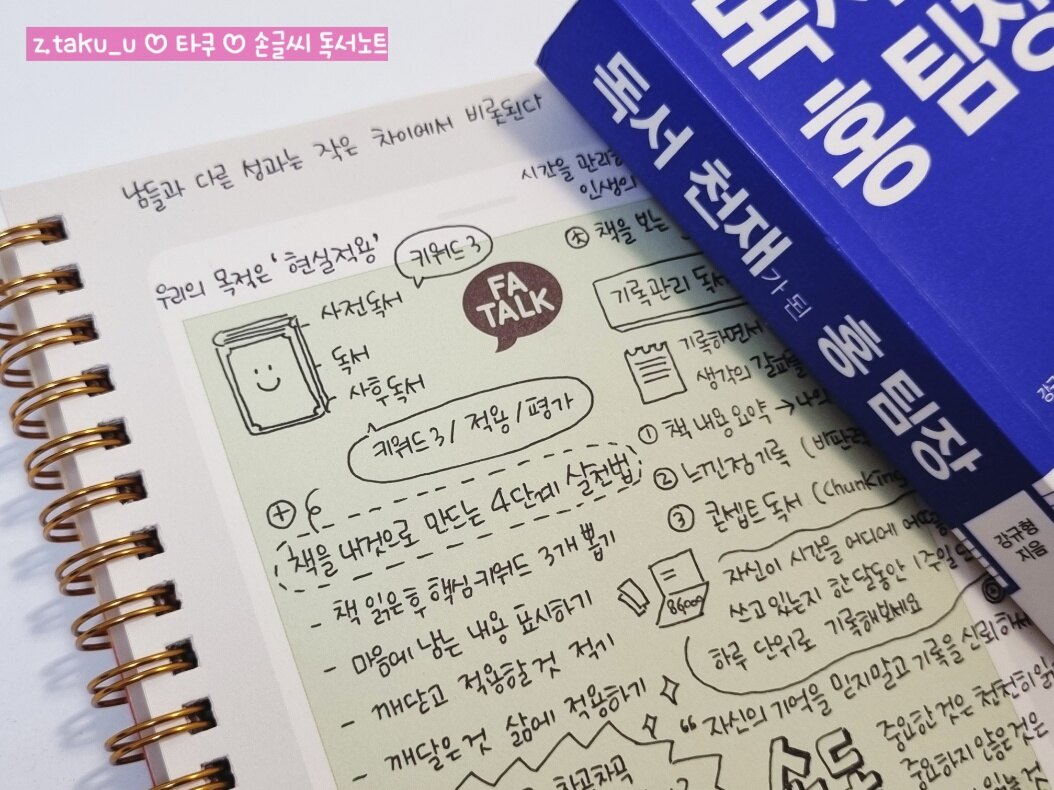 z.taku_u ♡ 타쿠 ♡ 손글씨 독서노트
남들과 다른 성과는 작은 차이에서 비롯된다
우리의 목적은 '현실적용'
키워드 3
사전독서
독서
사후독서
FA
TALK
키워드3 / 적용 / 평가
책을 내것으로 만드는 4단계 실전법
- 책 읽은 후 핵심 키워드 3개 뽑기
- 마음에 남는 내용 표시하기
- 깨닫고 적용할 것 적기
- 깨달은 것 삶에 적용하기
차곡차곡
시간을
인생의
책을 보는
기록관리
기록하면서
생각의
① 책 내용 요약 →
② 느낀점 기록
③ 콘셉트 독서 (Chunking
86000
자신이 시간을 어디에
쓰고 있는지 한 달동안
하루 단위로 기록해보세요
“자신의 기억을 믿지말고 기록을
속도
중요한 것은 천천히
중요하지 않은 것은
독서 천재가 된 홍 팀장
강규형
지음
홍